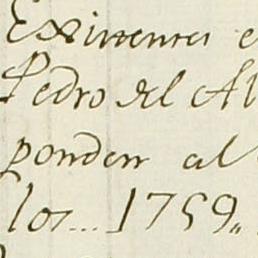 Existentes e
Pedro del Al
ponden al
los... 1759,,